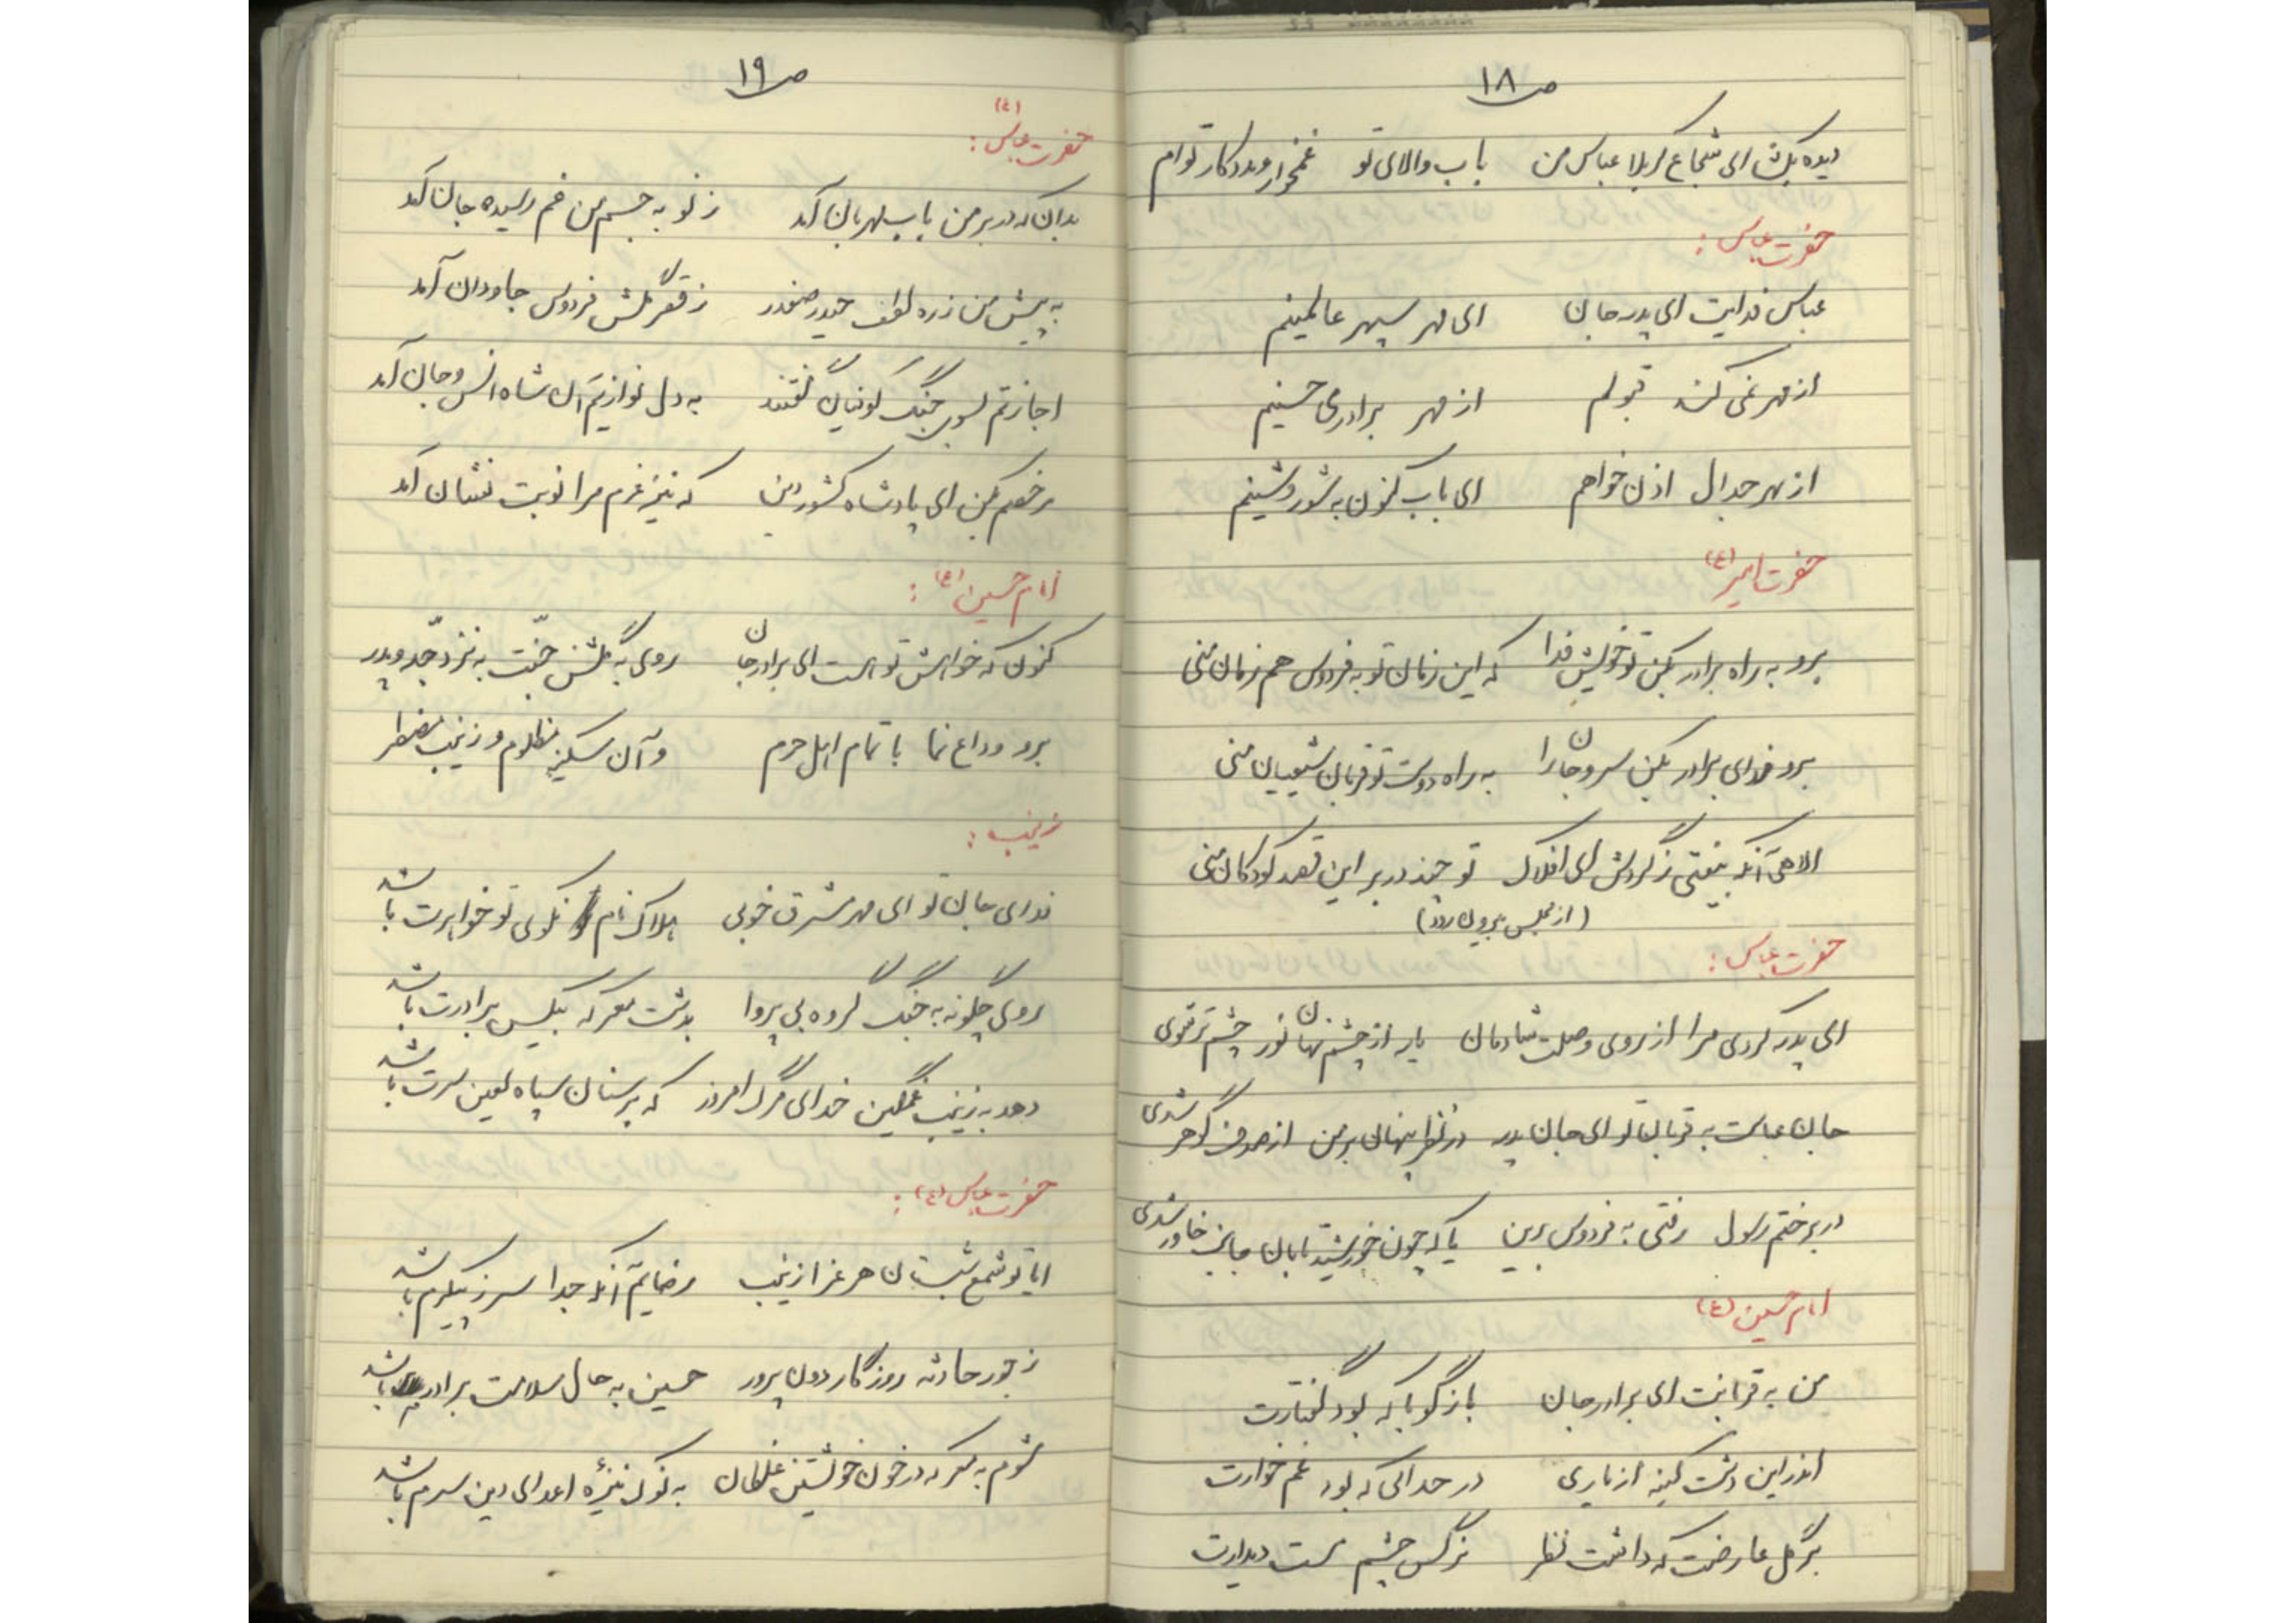 ص ۱۸
دیده بگشا ای شجاع کربلا عباس من باب والای تو غمخوار و مددکار توام
حضرت عباس :
عباس فدایت ای پدر جان ای مهر سپهر عالمینم
از مهر نمی کند قبولم از مهر برادری حسینم
از بهر جدال اذن خواهم ای باب کنون به شور و شینم
حضرت امیر (ع)
برو به راه برادر بکن تو خویش فدا که این زمان تو به فردوس هم زمان منی
برو فدای برادر بکن سر و جان را به راه دوست تو قربان شیعیان منی
الا هی آنکه بیفتی ز گردش ای افلاک تو چند در بر این قصد کودکان منی
(از مجلس بیرون رود)
حضرت عباس :
ای پدر کردی مرا از روی وصلت شادمان یا به از چشم نهان نور چشم تر توی
جان عباست به قربان تو ای جان پدر در نظر پنهان بر من از صدف گوهر شدی
در بر ختم رسول رفتی به فردوس برین یا که چون خورشید تابان جانب خاور شدی
امام حسین (ع)
من به قربانت ای برادر جان بازگو با که بود گفتارت
اندر این دشت کینه از یاری در جدالی که بود غم خوارت
بر گل عارضت که داشت نظر نرگس چشم مست دیدارت
ص ۱۹
حضرت عباس (ع) :
بدان که در بر من باب مهربان آمد ز نو به جسم من غم رسیده جان آمد
به پیش من ز ره لطف حیدر صفدر ز قصر گلشن فردوس جاودان آمد
اجازتم بسوی جنگ کوفیان گفتند به دل نوازیم آن شاه انس و جان آمد
مرخصم بکن ای پادشاه کشور دین که نیز عزم مرا نوبت نشان آمد
امام حسین (ع) :
کنون که خواهش تو هست ای برادر جان روی به گلشن جنّت به نزد جدّ و پدر
برو وداع نما با تمام اهل حرم و آن سکینه مظلوم و زینب مضطر
زینب :
فدای جان تو ای مهر مشرق خوبی هلاک نام نکوی تو خواهرت باشد
روی چگونه به جنگ گروه بی پروا بدشت معرکه بیکس برادرت باشد
دهد به زینب غمگین خدای مرگ امروز که بر سنان سپاه لعین سرت باشد
حضرت عباس (ع) :
ایا تو شمع شبستان هر عزا زینب رضایم آنکه جدا سر ز پیکرم باشد
ز جور حادثه روزگار دون پرور حسین به حال سلامت برادرم باشد
شوم به معرکه در خون خویشتن غلطان به نوک نیزهٔ اعدای دین سرم باشد